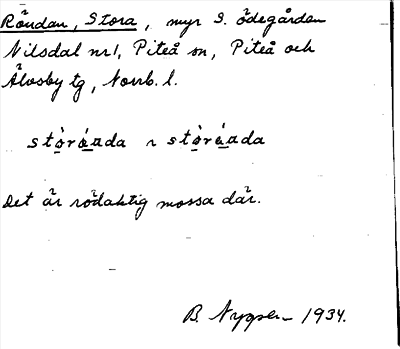 Röudan, Stora, myr S. ödegården
Nilsdal nr 1, Piteå sn, Piteå och
Älvsby tg, Norrb. l.
stò̱rá̱a̱da ~ stò̱rá̱a̱da
Det är rödaktig mossa där.
B. 1934.